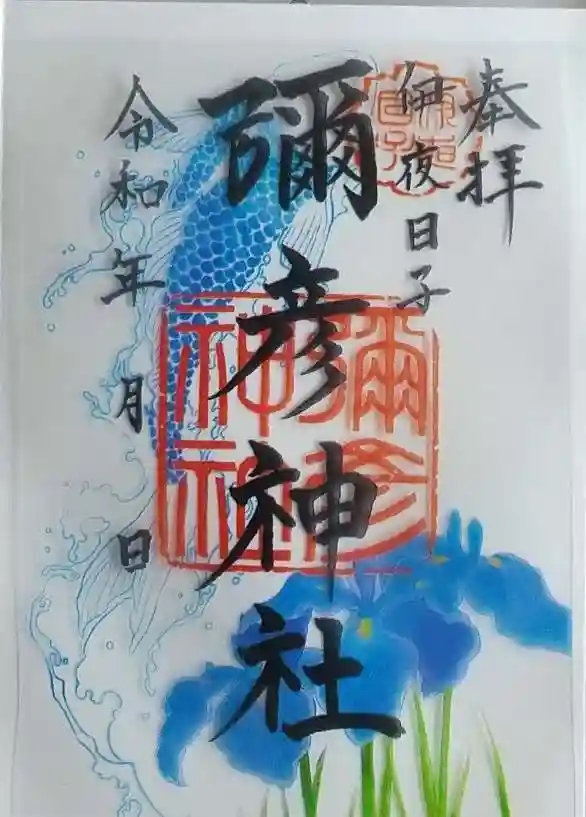 奉拝
伊夜日子
彌彦神社
彌彦
神社
令和 年 月 日